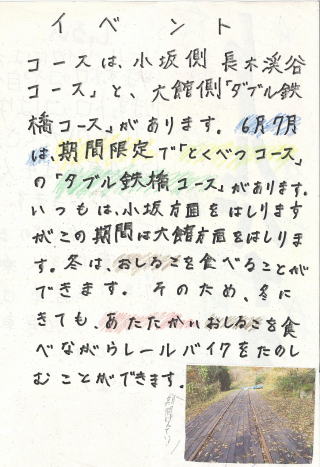 イベント
コースは、小坂側 長木渓谷
コース」と、大館側「ダブル鉄
橋コース」があります。6月7月
は、期間限定で「とくべつコース」
の「ダブル鉄橋コース」があります。
いつもは、小坂方面をはしります
が、この期間は大館方面をはしりま
す。冬は、おしるこを食べることが
できます。そのため、冬に
きても、あたたかいおしるこを食
べながらレールバイクをたのし
むことができます。